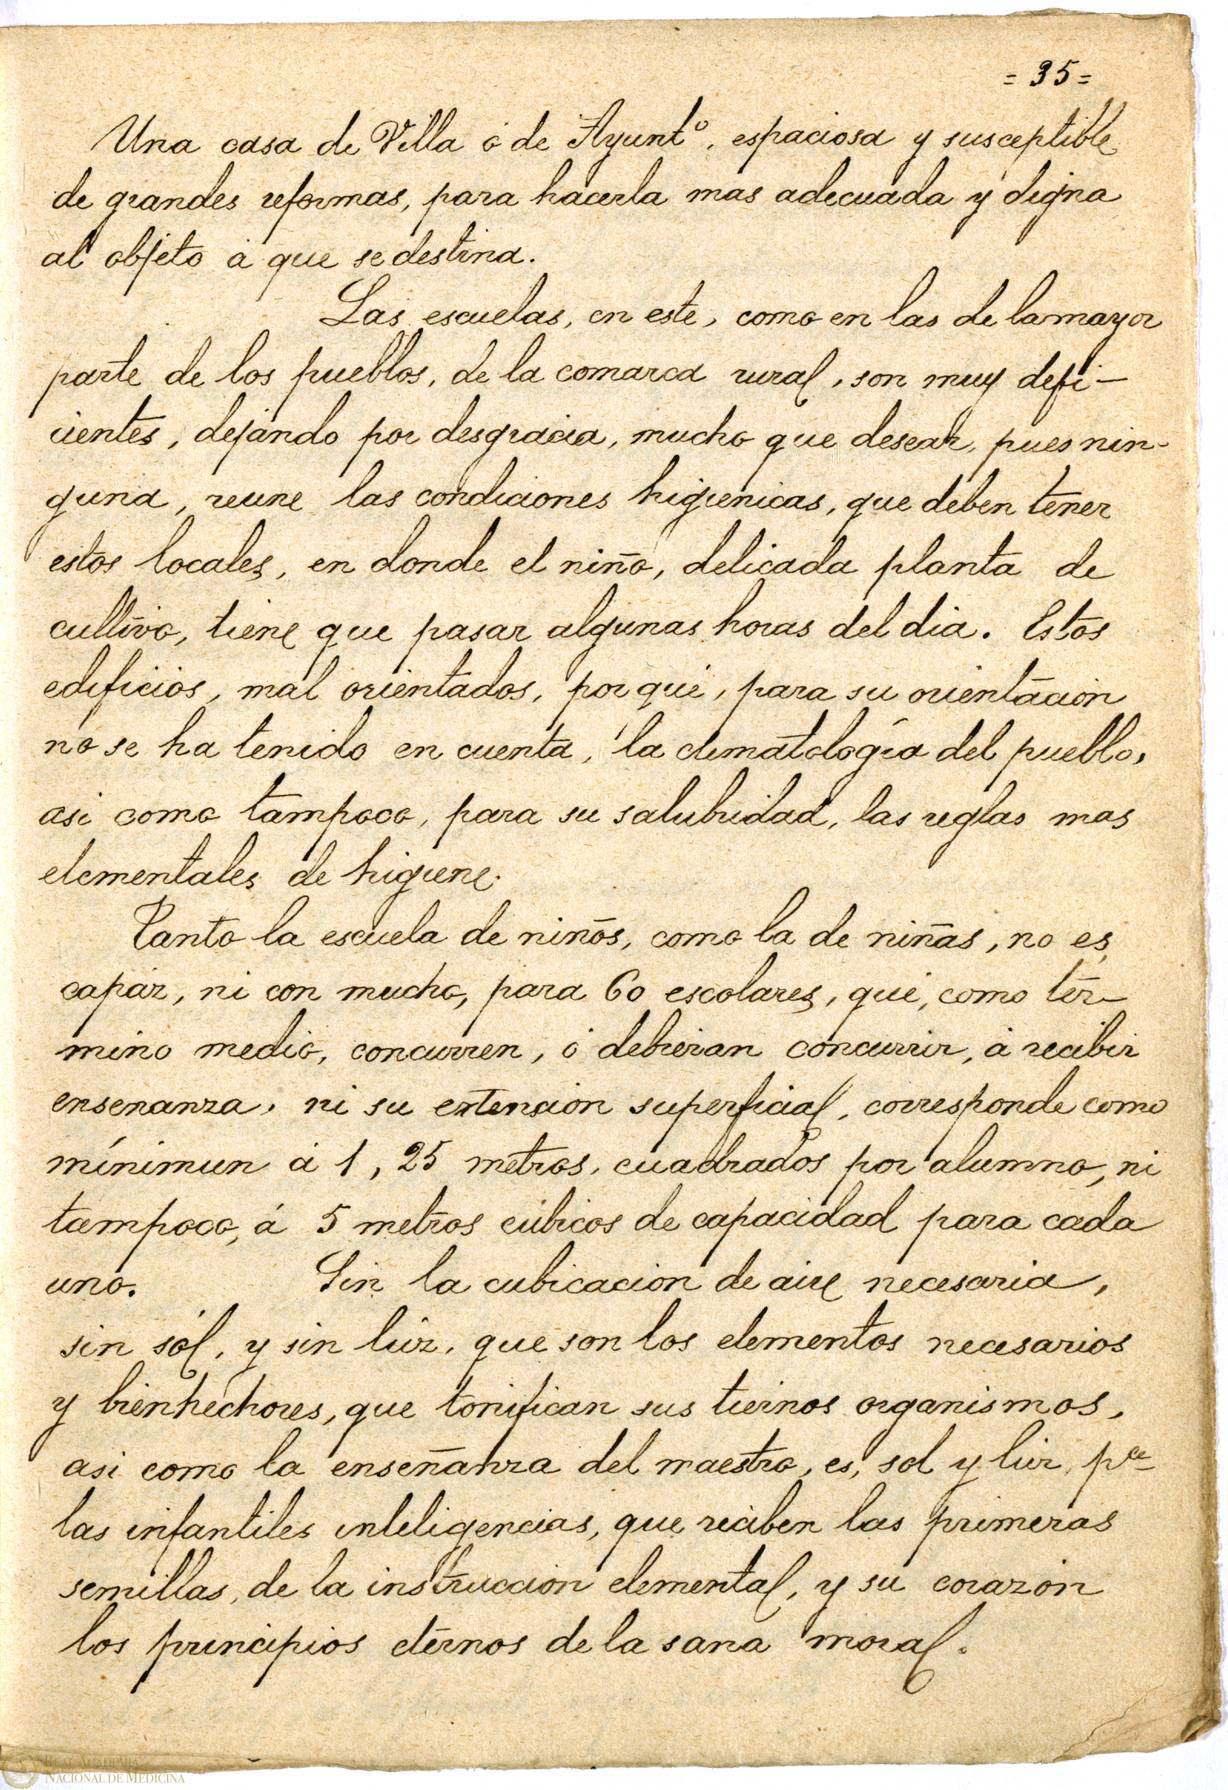 = 35 =
Una casa de Villa ó de Ayuntº. espaciosa y susceptible
de grandes reformas, para hacerla mas adecuada y digna
al objeto á que se destina.
Las escuelas, en este, como en las de la mayor
parte de los pueblos, de la comarca rural, son muy defi-
cientes, dejando por desgracia, mucho que desear, pues nin-
guna, reune las condiciones higienicas, que deben tener
estos locales, en donde el niño, delicada planta de
cultivo, tiene que pasar algunas horas del dia. Estos
edificios, mal orientados, por que, para su orientacion
no se ha tenido en cuenta, la climatología del pueblo,
asi como tampoco, para su salubridad, las reglas mas
elementales de higiene.
Tanto la escuela de niños, como la de niñas, no es
capáz, ni con mucho, para 60 escolares, que, como tér-
mino medio, concurren, ó debieran concurrir, á recibir
ensenanza, ni su extension superficial, corresponde como
mínimun á 1, 25 metros, cuadrados por alumno, ni
tampoco, á 5 metros cúbicos de capacidad para cada
uno. Sin la cubicación de aire necesaria,
sin sól, y sin lúz, que son los elementos necesarios
y bienhechores, que tonifican sus tiernos organismos,
asi como la enseñanza del maestro, es, sol y lúz, pª
las infantiles inteligencias, que reciben las primeras
semillas, de la instruccion elemental, y su corazón
los principios etérnos de la sana moral.
REAL ACADEMIA
NACIONAL DE MEDICINA